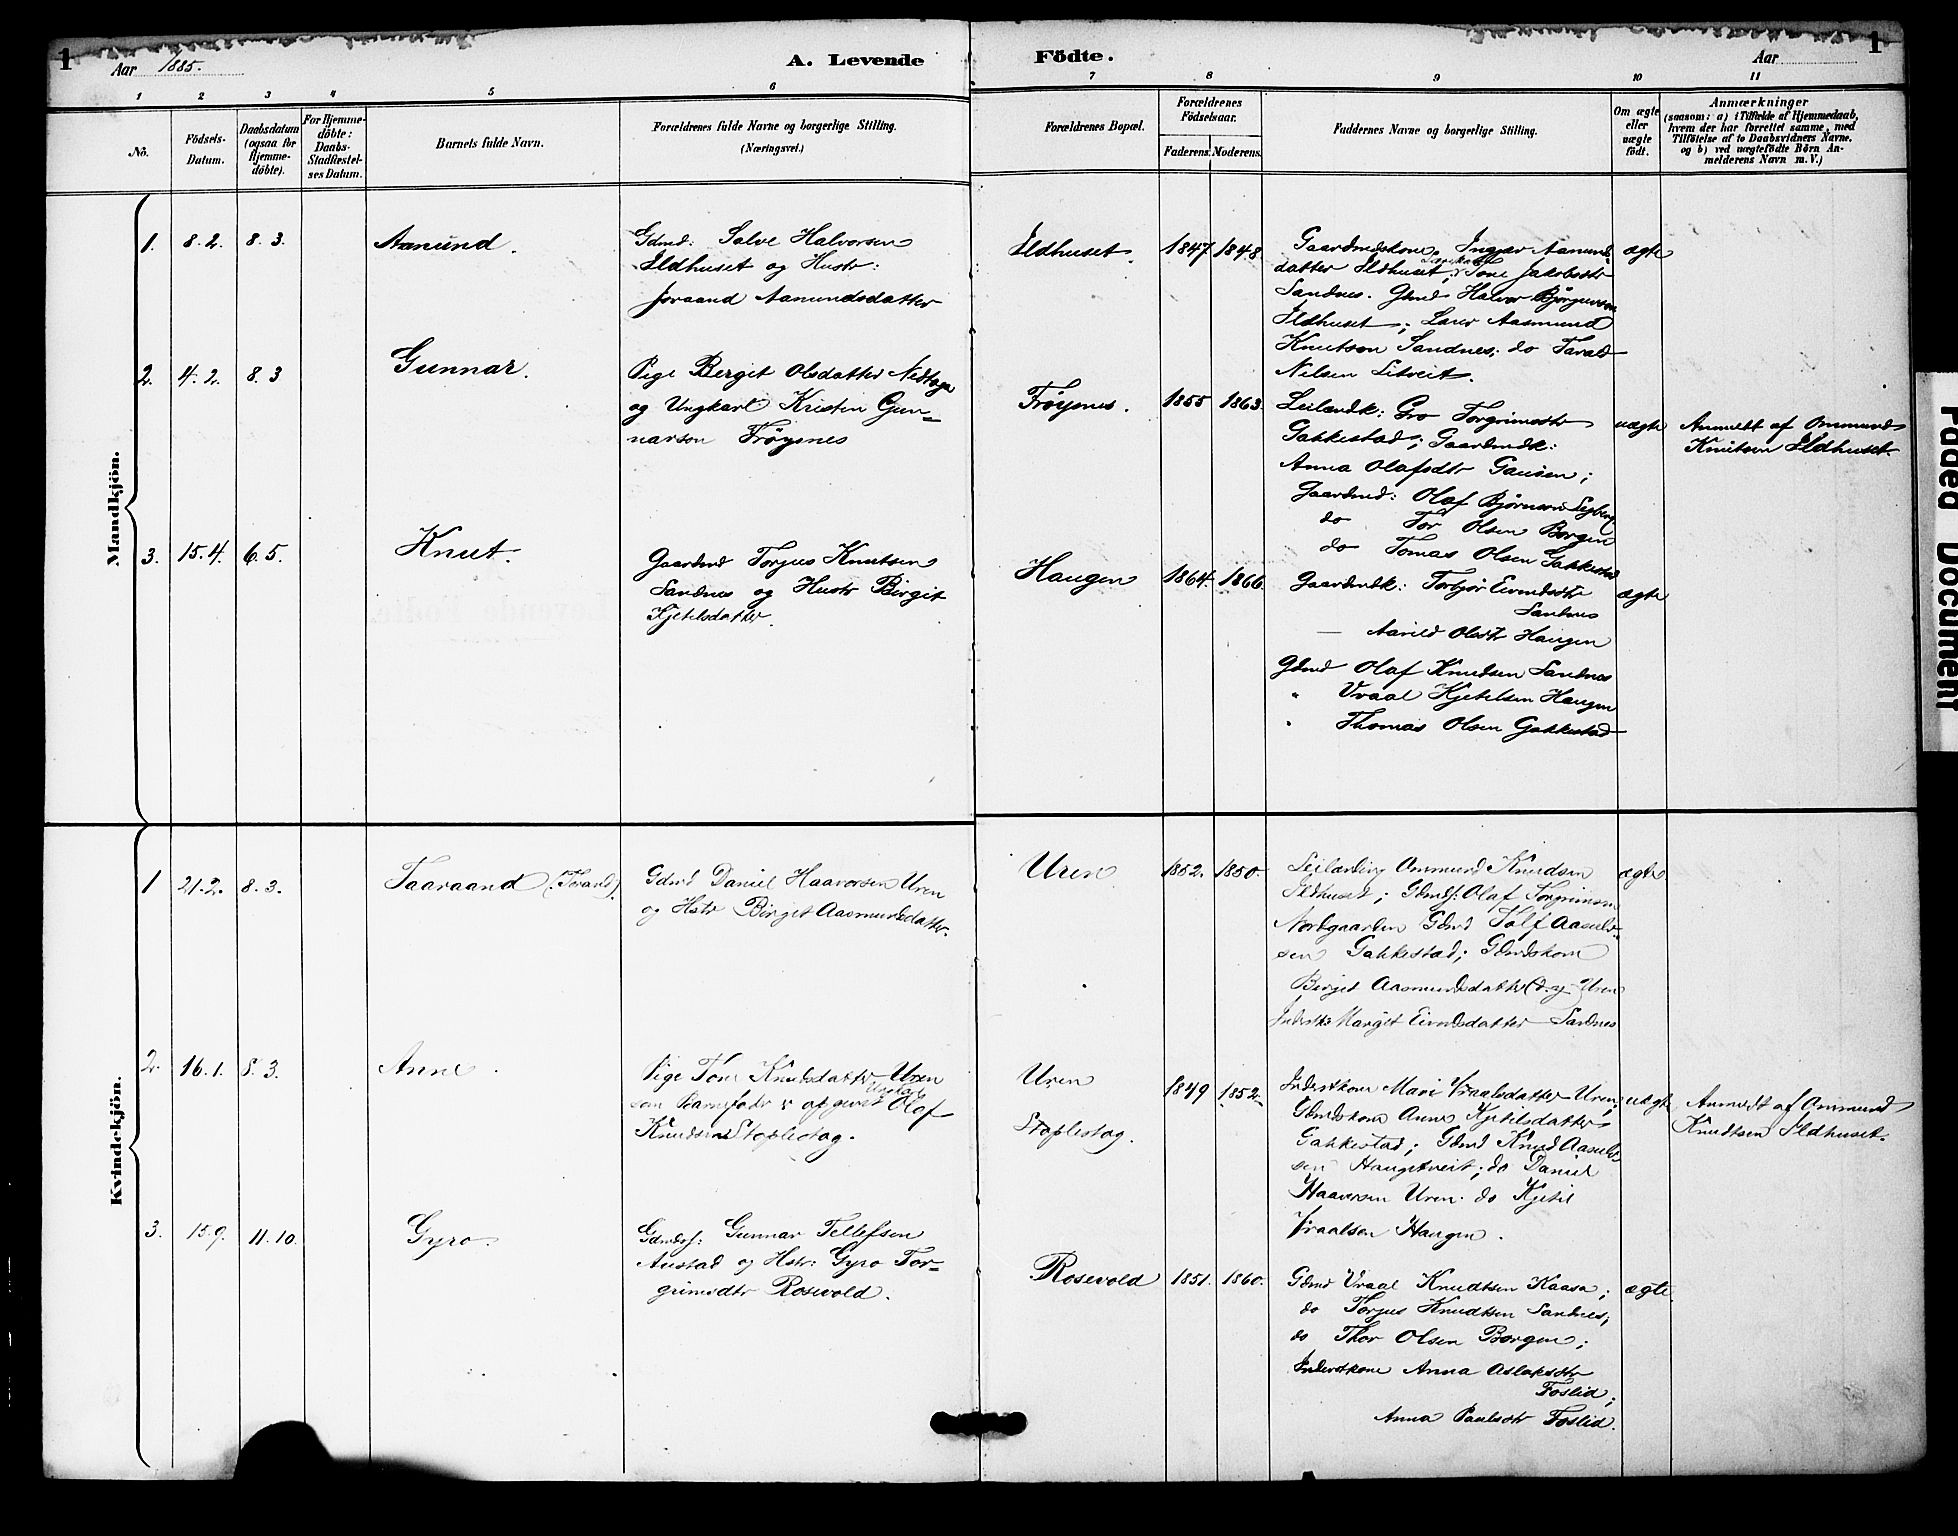 1
Aar 1885.
A. Levende
Födte.
Aar
1
1
2
3
4
5
6
7
8
9
10
11
No.
Födsels-
Datum.
Daabsdatum
(ogsaa for
Hjemme-
döbte).
For Hjemme-
döbte:
Daabs-
Stadfæstel-
ses Datum.
Barnets fulde Navn.
Forældrenes fulde Navne og borgerlige Stilling.
(Næringsvei.)
Forældrenes Bopæl.
Forældrenes
Födselsaar.
Faderens.
Moderens.
Faddernes Navne og borgerlige Stilling.
Om ægte
eller
uægte
födt.
Anmærkninger
(saasom: a) i Tilfælde af Hjemmedaab,
hvem der har forrettet samme, med
Tilföielse af to Daabsvidners Navne.
og b) ved uægtefödte Börn An-
melderens Navn m. V.)
Mandkjön.
1. 8.2. 8.3. Aamund.
Gdmd: Salve Halvorsen
Ildhuset og Hustr:
Joraand Aamundsdatter
Ildhuset 1847 1848.
Gaardmdskone Ingjær Aamund
datter Ildhuset, Tone Jakobsdtr
Sandnes. Gdmd Halvor Bjørgufson
Ildhuset; Lærer Aasmund
Knutson Sandnes; do Tarald
Nelsen Litveit.
ægte
2. 4.2. 8.3 Gunnar.
Pige Berget Olsdatter
og Ungkarl Kristen Gun-
narson Frøysnes
Frøysnes. 1855 1863.
Leilændk: Gro Torgrimsdtr
Gakkestad; Gaardmdk:
Anna Olafsdtr
Gaardmd: Olaf Bjørnson
do Tor Olsen Borgen
do Tomas Olsen Gakkestad
uægte
Anmeldt af Ommund
Knutsen Ildhuset
3. 15.4. 6.5. Knut.
Gaardmd Torjus Knutsen
Sandnes og Hustr Birgit
Kjetilsdatter.
Haugen 1864. 1866.
Gaardmdk: Torbjør Eivindsdtr
Sandnes
— Aavild Olsdtr Haugen
Gdmd Olaf Knudsen Sandnes
" Vraal Kjetilsen Haugen
" Thomas Olsen Gakkestad
ægte
Kvindekjön.
1 21.2. 8.3. Taaraand (Torand).
Gdmd Daniel Haavorsen Uren
og Hstr Birget Aasmundsdatter.
Uren 1852. 1850.
Leilænding Ommund Knudsen
Ildhuset; Gdmdf: Olaf Torgrimsen
Nordgaarden Gdmd Tolf Aasulv-
sen Gakkestad; Gdmdskone
Birget Aasmundsdatter (d.y) Uren
Inderstk: Margit Eivindsdatter Sandnes
ægte
2. 16.1. 8.3. Anne.
Pige Tone Knudsdatter Uren
som Barnefader er opgivet Ungkarl Olaf
Knudsen Stoplestag.
Uren
Stoplestag.
1849 1852
Inderstkone Mari Vraalsdatter Uren;
Gdmdskone Anne Kjetilsdatter
Gakkestad; Gdmd Knud Aasulv-
sen Haugetveit; do Daniel
Haavorsen Uren. do Kjetil
Vraalsen Haugen.
uægte
Anmeldt af Ommund
Knudtsen Ildhuset.
3. 15.9. 11.10. Gyro.
Gdmdsf: Gunnar Tellefsen
Austad og Hstr: Gyro Tor-
grimsdtr Rosevold.
Rosevold 1851. 1860.
Gdmd Vraal Knudtsen Kaasa;
do Torjus Knudtsen Sandnes,
do Thor Olsen Borgen;
Inderstkone Anna Aslaksdtr
Foslid;
Anna Paulsdtr Foslid.
ægte.
Faded Document